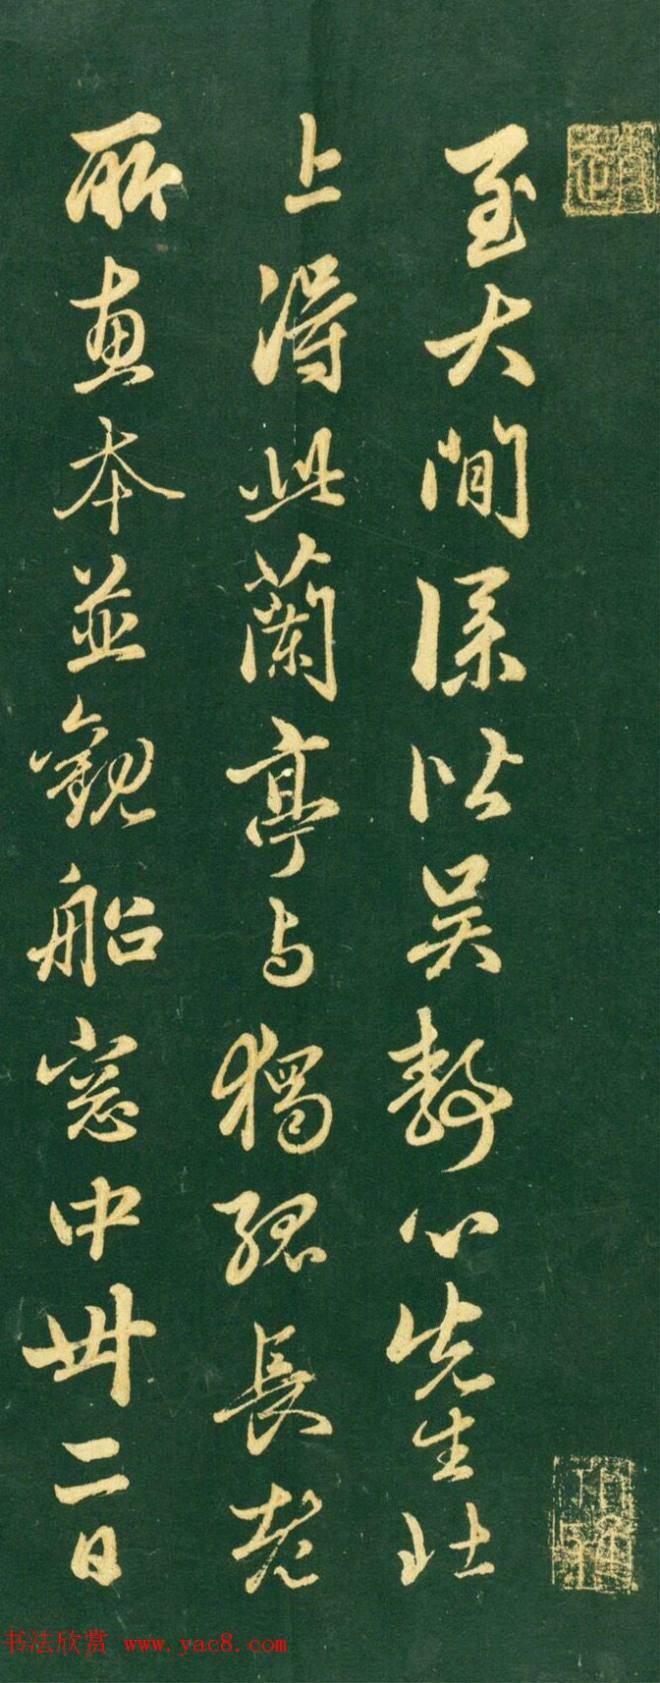 至大間僕以吳静心先生北
上得此蘭亭与獨孤長老
所惠本並觀船窓中卅二日
书法欣赏 www.yac8.com